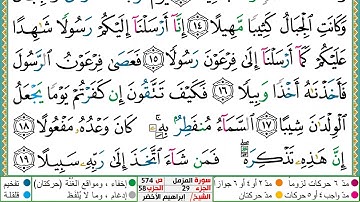 وَكَانَتِ ٱلْجِبَالُ كَثِيبًا مَّهِيلًا ١٤ إِنَّآ أَرْسَلْنَآ إِلَيْكُمْ رَسُولًا شَٰهِدًا
عَلَيْكُمْ كَمَآ أَرْسَلْنَآ إِلَىٰ فِرْعَوْنَ رَسُولًا ١٥ فَعَصَىٰ فِرْعَوْنُ ٱلرَّسُولَ
فَأَخَذْنَٰهُ أَخْذًا وَبِيلًا ١٦ فَكَيْفَ تَتَّقُونَ إِن كَفَرْتُمْ يَوْمًا يَجْعَلُ
ٱلْوِلْدَٰنَ شِيبًا ١٧ ٱلسَّمَآءُ مُنفَطِرٌۢ بِهِۦ ۚ كَانَ وَعْدُهُۥ مَفْعُولًا ١٨
إِنَّ هَٰذِهِۦ تَذْكِرَةٌ ۖ فَمَن شَآءَ ٱتَّخَذَ إِلَىٰ رَبِّهِۦ سَبِيلًا ١٩
مدّ ٦ حركات لزوماً مدّ ٢ أو ٤ أو ٦ جوازاً
مدّ واجب ٤ أو ٥ حركات مدّ حركتان
سورة المزمل ص 574
الجزء 29 الحزب 58
الشيخ/ إبراهيم الأخضر
إخفاء، ومواقع الغُنَّة (حركتان) تفخيم
إدغام، وما لا يُلفَظ قلقلة